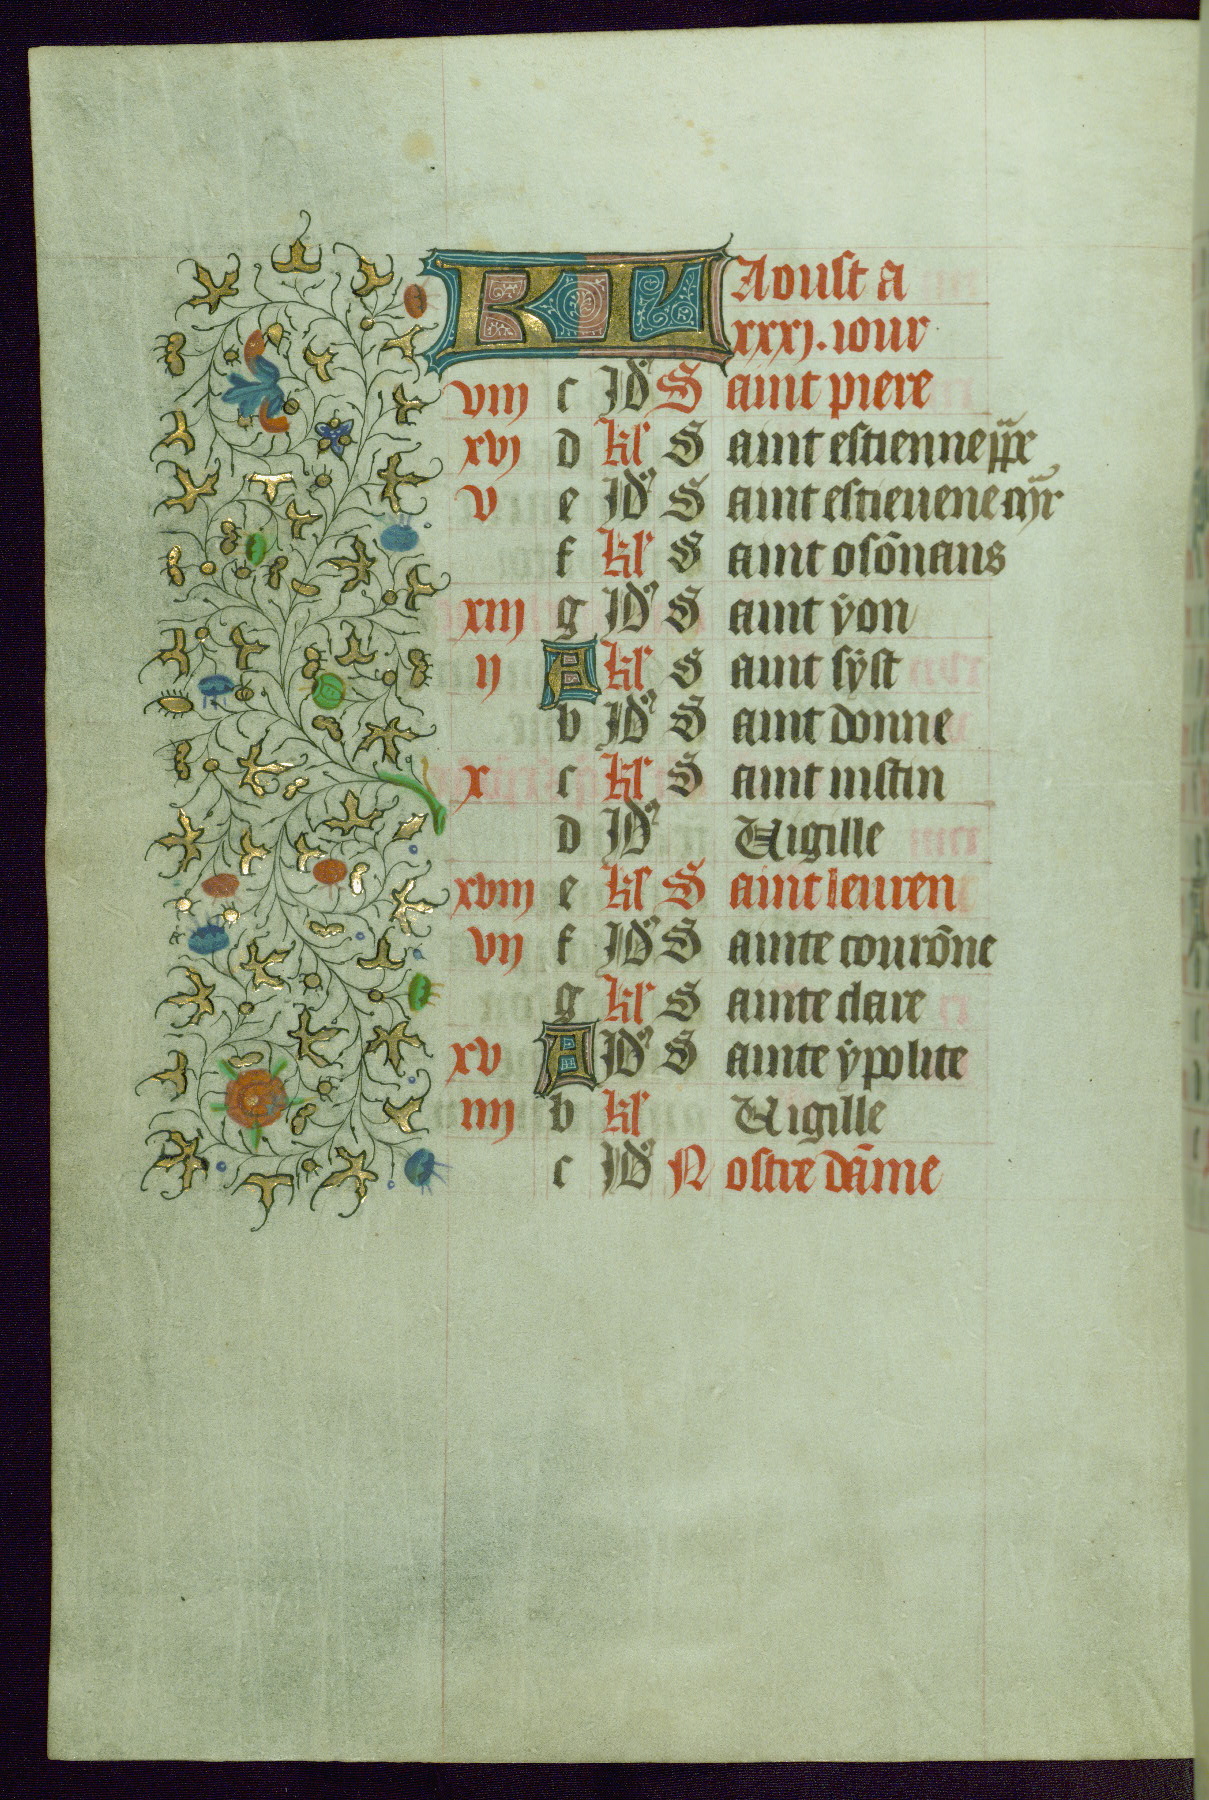 KL Aoust a
xxxj. iour
viij c Id S aint piere
xvj d kl S aint estienne ppe
v e Id S aint estieuene mr
f kl S aint osōnaus
xiij g Id S aint ẏon
ij A kl S aint sẏst
b Id S aint donne
x c kl S aint iustin
d Id Uigille
xviij e kl S aint leuren
vij f Id S ainte courōne
g kl S ainte clare
xv A Id S ainte ẏpolite
iiij b kl Uigille
c Id N ostre dāme